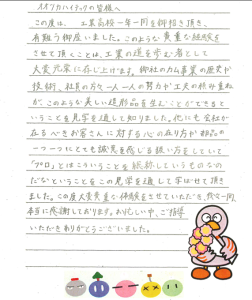 オオフカハイテックの皆様へ
この度は、工業高校一年一同を御招き頂き、
有難う御座いました。このような貴重な経験を
させて頂くことは、工業の道を歩む者として
大変光栄に存じ上げます。御社のカム事業の歴史や
技術、社員の方々一人一人の努力や工夫の積み重ね
が、このような美しい造形品を生むことができると
いうことを見学を通して知りました。他にも会社が
在るべきお客さんに対する心の在り方や部品の
一つ一つにとても誠意を感じる扱い方をしていて
「プロ」とはこういうことを総称しているものなの
だなということをこの見学を通して学ばせて頂き
ました。この度大変貴重な体験をさせていただき、我々一同、
本当に感謝しております。お忙しい中、ご指導
いただきありがとうございました。